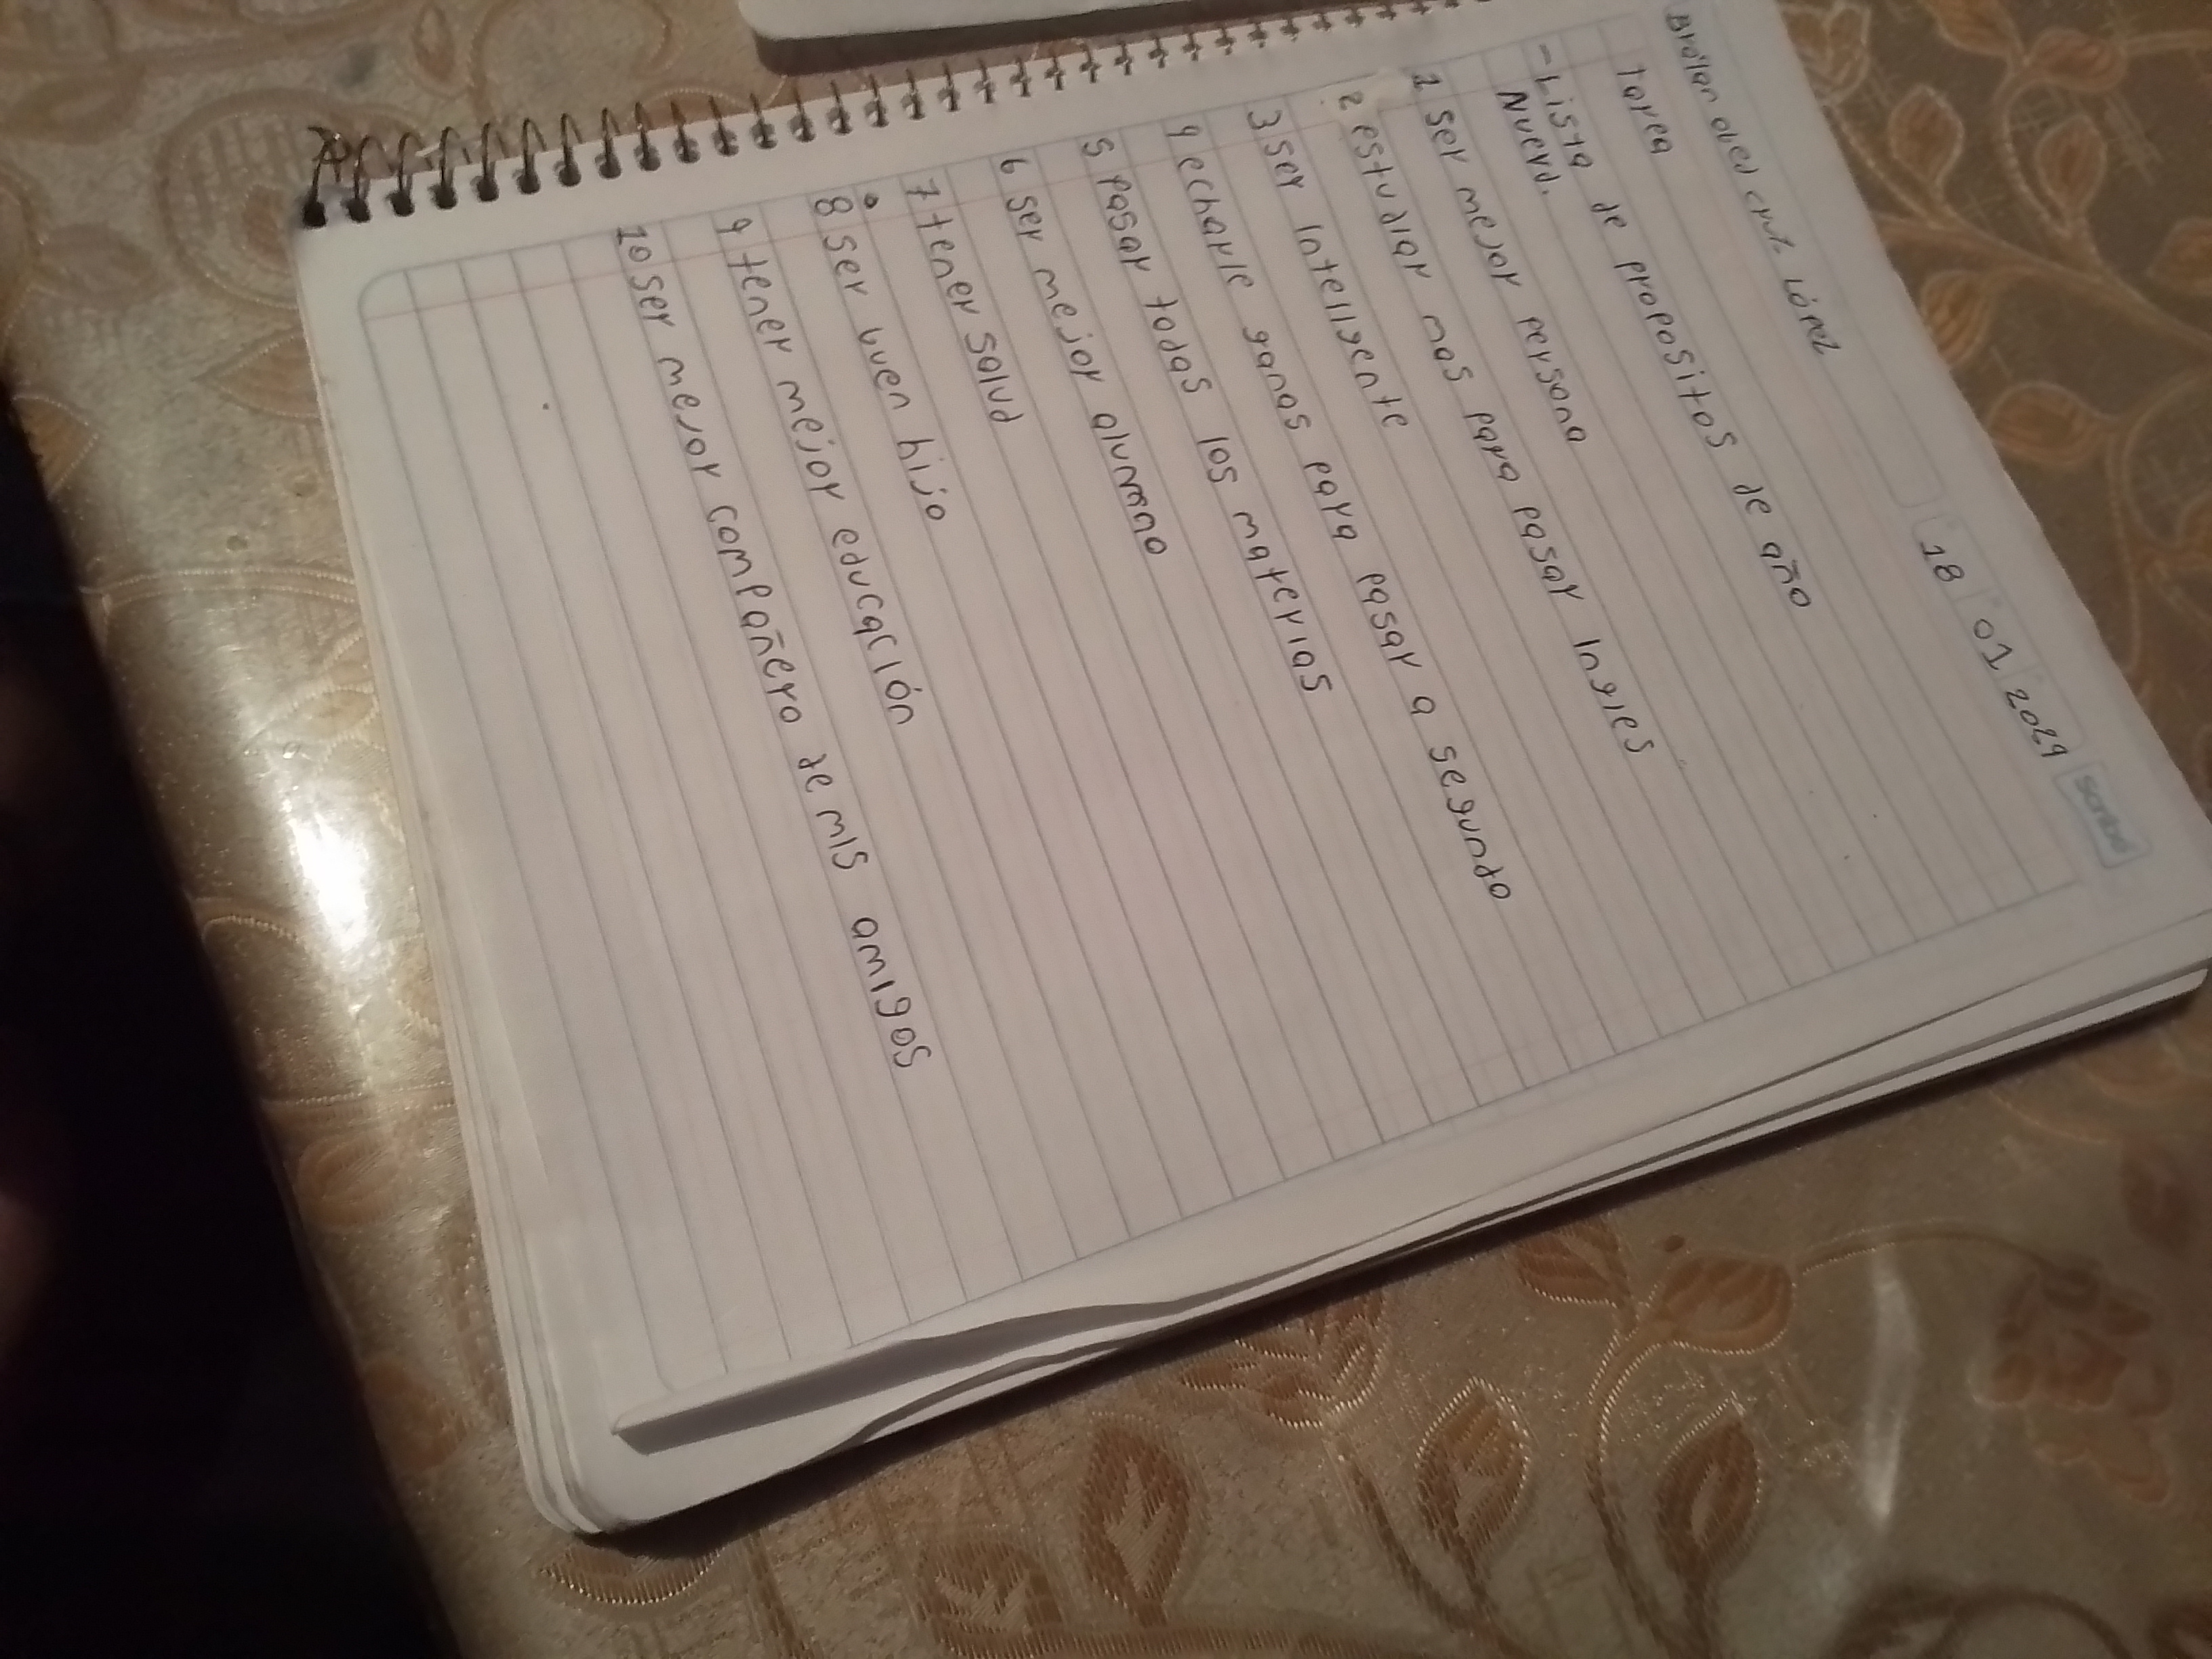 18 01 2024 Scribe
Braian obed cruz López
Tarea
- Lista de propositos de año
Nuevo.
1 ser mejor persona
2 estudiar mas para pasar Ingles
3 ser Inteligente
4 echarle ganas para pasar a segundo
5 pasar todas los materias
6 ser mejor alumno
7 tener salud
8 ser buen hijo
9 tener mejor educación
10 ser mejor compañero de mis amigos